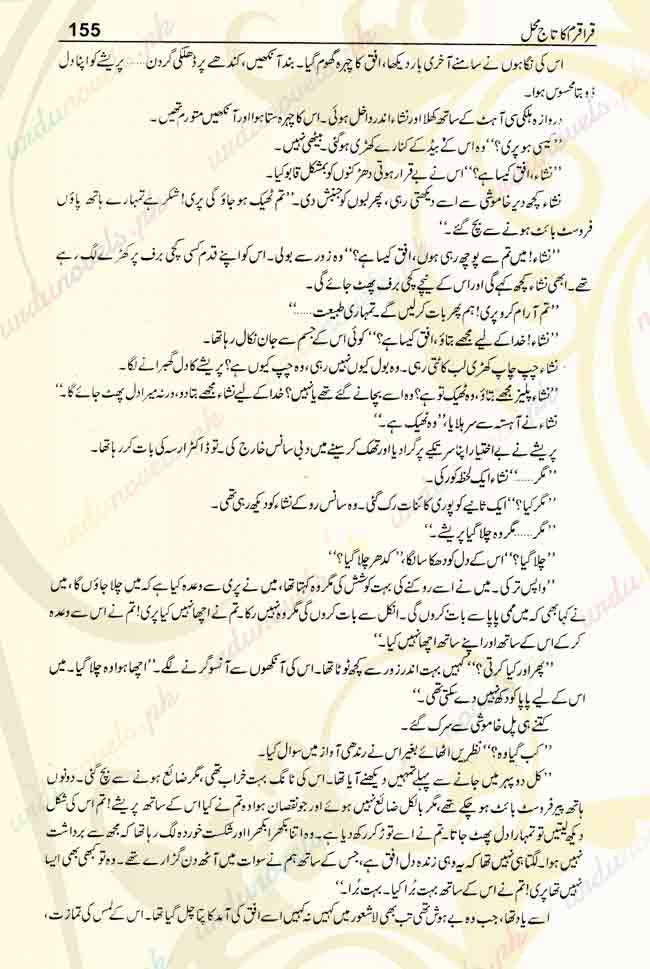 قراقرم کا تاج محل 155
اس کی نگاہوں نے سامنے آخری بار دیکھا، افق کا چہرہ گھوم گیا۔ بند آنکھیں، کندھے پر ڈھلکی گردن...... پریشے کو اپنا دل
ڈوبتا محسوس ہوا۔
دروازہ ہلکی سی آہٹ کے ساتھ کھلا اور نشاء اندر داخل ہوئی۔ اس کا چہرہ ستا ہوا اور آنکھیں متورم تھیں۔
’’کیسی ہو پری؟‘‘ وہ اس کے بیڈ کے کنارے کھڑی ہو گئی۔ بیٹھی نہیں۔
’’نشاء، افق کیسا ہے؟‘‘ اس نے بے قرار ہوتی دھڑکنوں کو بمشکل قابو کیا۔
نشاء کچھ دیر خاموشی سے اسے دیکھتی رہی، پھر لبوں کو جنبش دی۔ ’’تم ٹھیک ہو جاؤ گی پری! شکر ہے تمہارے ہاتھ پاؤں
فروسٹ بائٹ ہونے سے بچ گئے۔‘‘
’’نشاء! میں تم سے پوچھ رہی ہوں، افق کیسا ہے؟‘‘ وہ زور سے بولی۔ اس کو اپنے قدم کسی کچی برف پر کھڑے لگ رہے
تھے۔ ابھی نشاء کچھ کہے گی اور اس کے نیچے کچی برف پھٹ جائے گی۔
’’تم آرام کرو پری! ہم پھر بات کر لیں گے۔ تمہاری طبیعت......‘‘
’’نشاء! خدا کے لیے مجھے بتاؤ، افق کیسا ہے؟‘‘ کوئی اس کے جسم سے جان نکال رہا تھا۔
نشاء چپ چاپ کھڑی لب کاٹتی رہی۔ وہ بول کیوں نہیں رہی، وہ چپ کیوں ہے؟ پریشے کا دل گھبرانے لگا۔
’’نشاء پلیز مجھے بتاؤ، وہ ٹھیک تو ہے؟ وہ اسے بچانے گئے تھے یا نہیں؟ خدا کے لیے نشاء مجھے بتا دو، ورنہ میرا دل پھٹ جائے گا۔‘‘
نشاء نے آہستہ سے سر ہلایا، ’’وہ ٹھیک ہے۔‘‘
پریشے نے بے اختیار اپنا سر تکیے پر گرا دیا اور تھک کر سینے میں دبی سانس خارج کی۔ تو ڈاکٹر ارسہ کی بات کر رہا تھا۔
’’مگر......‘‘ نشاء ایک لحظہ کو رکی۔
’’مگر کیا؟‘‘ ایک ثانیے کو پوری کائنات رک گئی۔ وہ سانس روکے نشاء کو دیکھ رہی تھی۔
’’مگر...... مگر وہ چلا گیا پریشے۔‘‘
’’چلا گیا؟‘‘ اس کے دل کو دھکا سا لگا، ’’کدھر چلا گیا؟‘‘
’’واپس ترکی۔ میں نے اسے روکنے کی بہت کوشش کی مگر وہ کہتا تھا، میں نے پری سے وعدہ کیا ہے کہ میں چلا جاؤں گا، میں
نے کہا بھی کہ میں ممی پاپا سے بات کروں گی۔ انکل سے بات کروں گی مگر وہ نہیں رکا۔ تم نے اچھا نہیں کیا پری! تم نے اس سے وعدہ
کر کے اس کے ساتھ اور اپنے ساتھ اچھا نہیں کیا۔‘‘
’’پھر اور کیا کرتی؟‘‘ کہیں بہت اندر زور سے کچھ ٹوٹا تھا۔ اس کی آنکھوں سے آنسو گرنے لگے۔ ’’اچھا ہوا وہ چلا گیا۔ میں
اس کے لیے پاپا کو دکھ نہیں دے سکتی تھی۔‘‘
کتنے ہی پل خاموشی سے سرک گئے۔
’’کب گیا وہ؟‘‘ نظریں اٹھائے بغیر اس نے رندھی آواز میں سوال کیا۔
’’کل دوپہر میں جانے سے پہلے تمہیں دیکھنے آیا تھا۔ اس کی ٹانگ بہت خراب تھی، مگر ضائع ہونے سے بچ گئی۔ دونوں
ہاتھ پیر فروسٹ بائٹ ہو چکے تھے، مگر بالکل ضائع نہیں ہوئے اور جو نقصان ہوا وہ تم نے کیا اس کے ساتھ پریشے! تم اس کی شکل
دیکھ لیتیں تو تمہارا دل پھٹ جاتا۔ تم نے اسے توڑ کر رکھ دیا ہے۔ وہ اتنا بکھرا بکھرا اور شکست خوردہ لگ رہا تھا کہ مجھ سے برداشت
نہیں ہوا۔ لگتا ہی نہیں تھا کہ یہ وہی زندہ دل افق ہے، جس کے ساتھ ہم نے سوات میں آٹھ دن گزارے تھے۔ وہ تو کبھی بھی ایسا
نہیں تھا پری! تم نے اس کے ساتھ بہت بُرا کیا۔ بہت بُرا۔‘‘
اسے یاد تھا، جب وہ بے ہوش تھی تب بھی لاشعور میں کہیں نہ کہیں اسے افق کی آمد کا پتا چل گیا تھا۔ اس کے لمس کی تمازت،